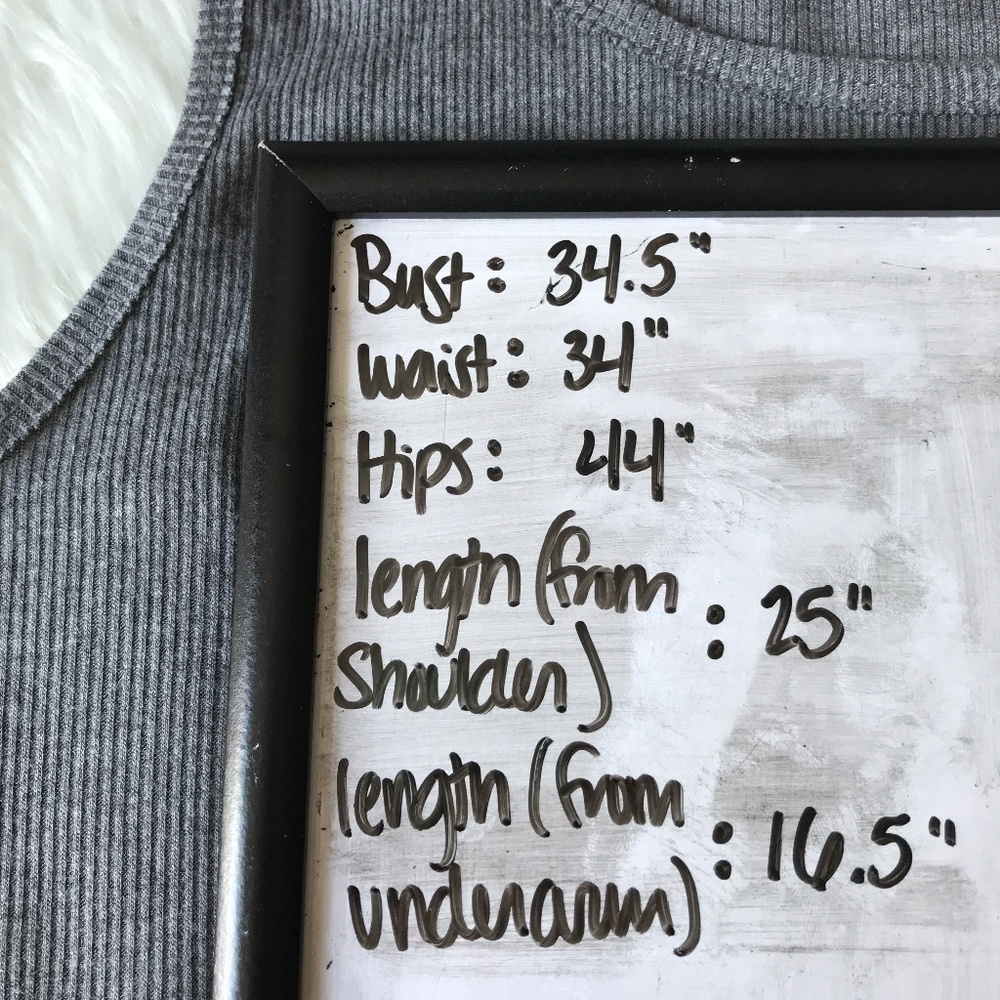 Bust: 34.5"
Waist: 34"
Hips: 44"
length (from
Shoulder) : 25"
length (from
underarm) : 16.5"